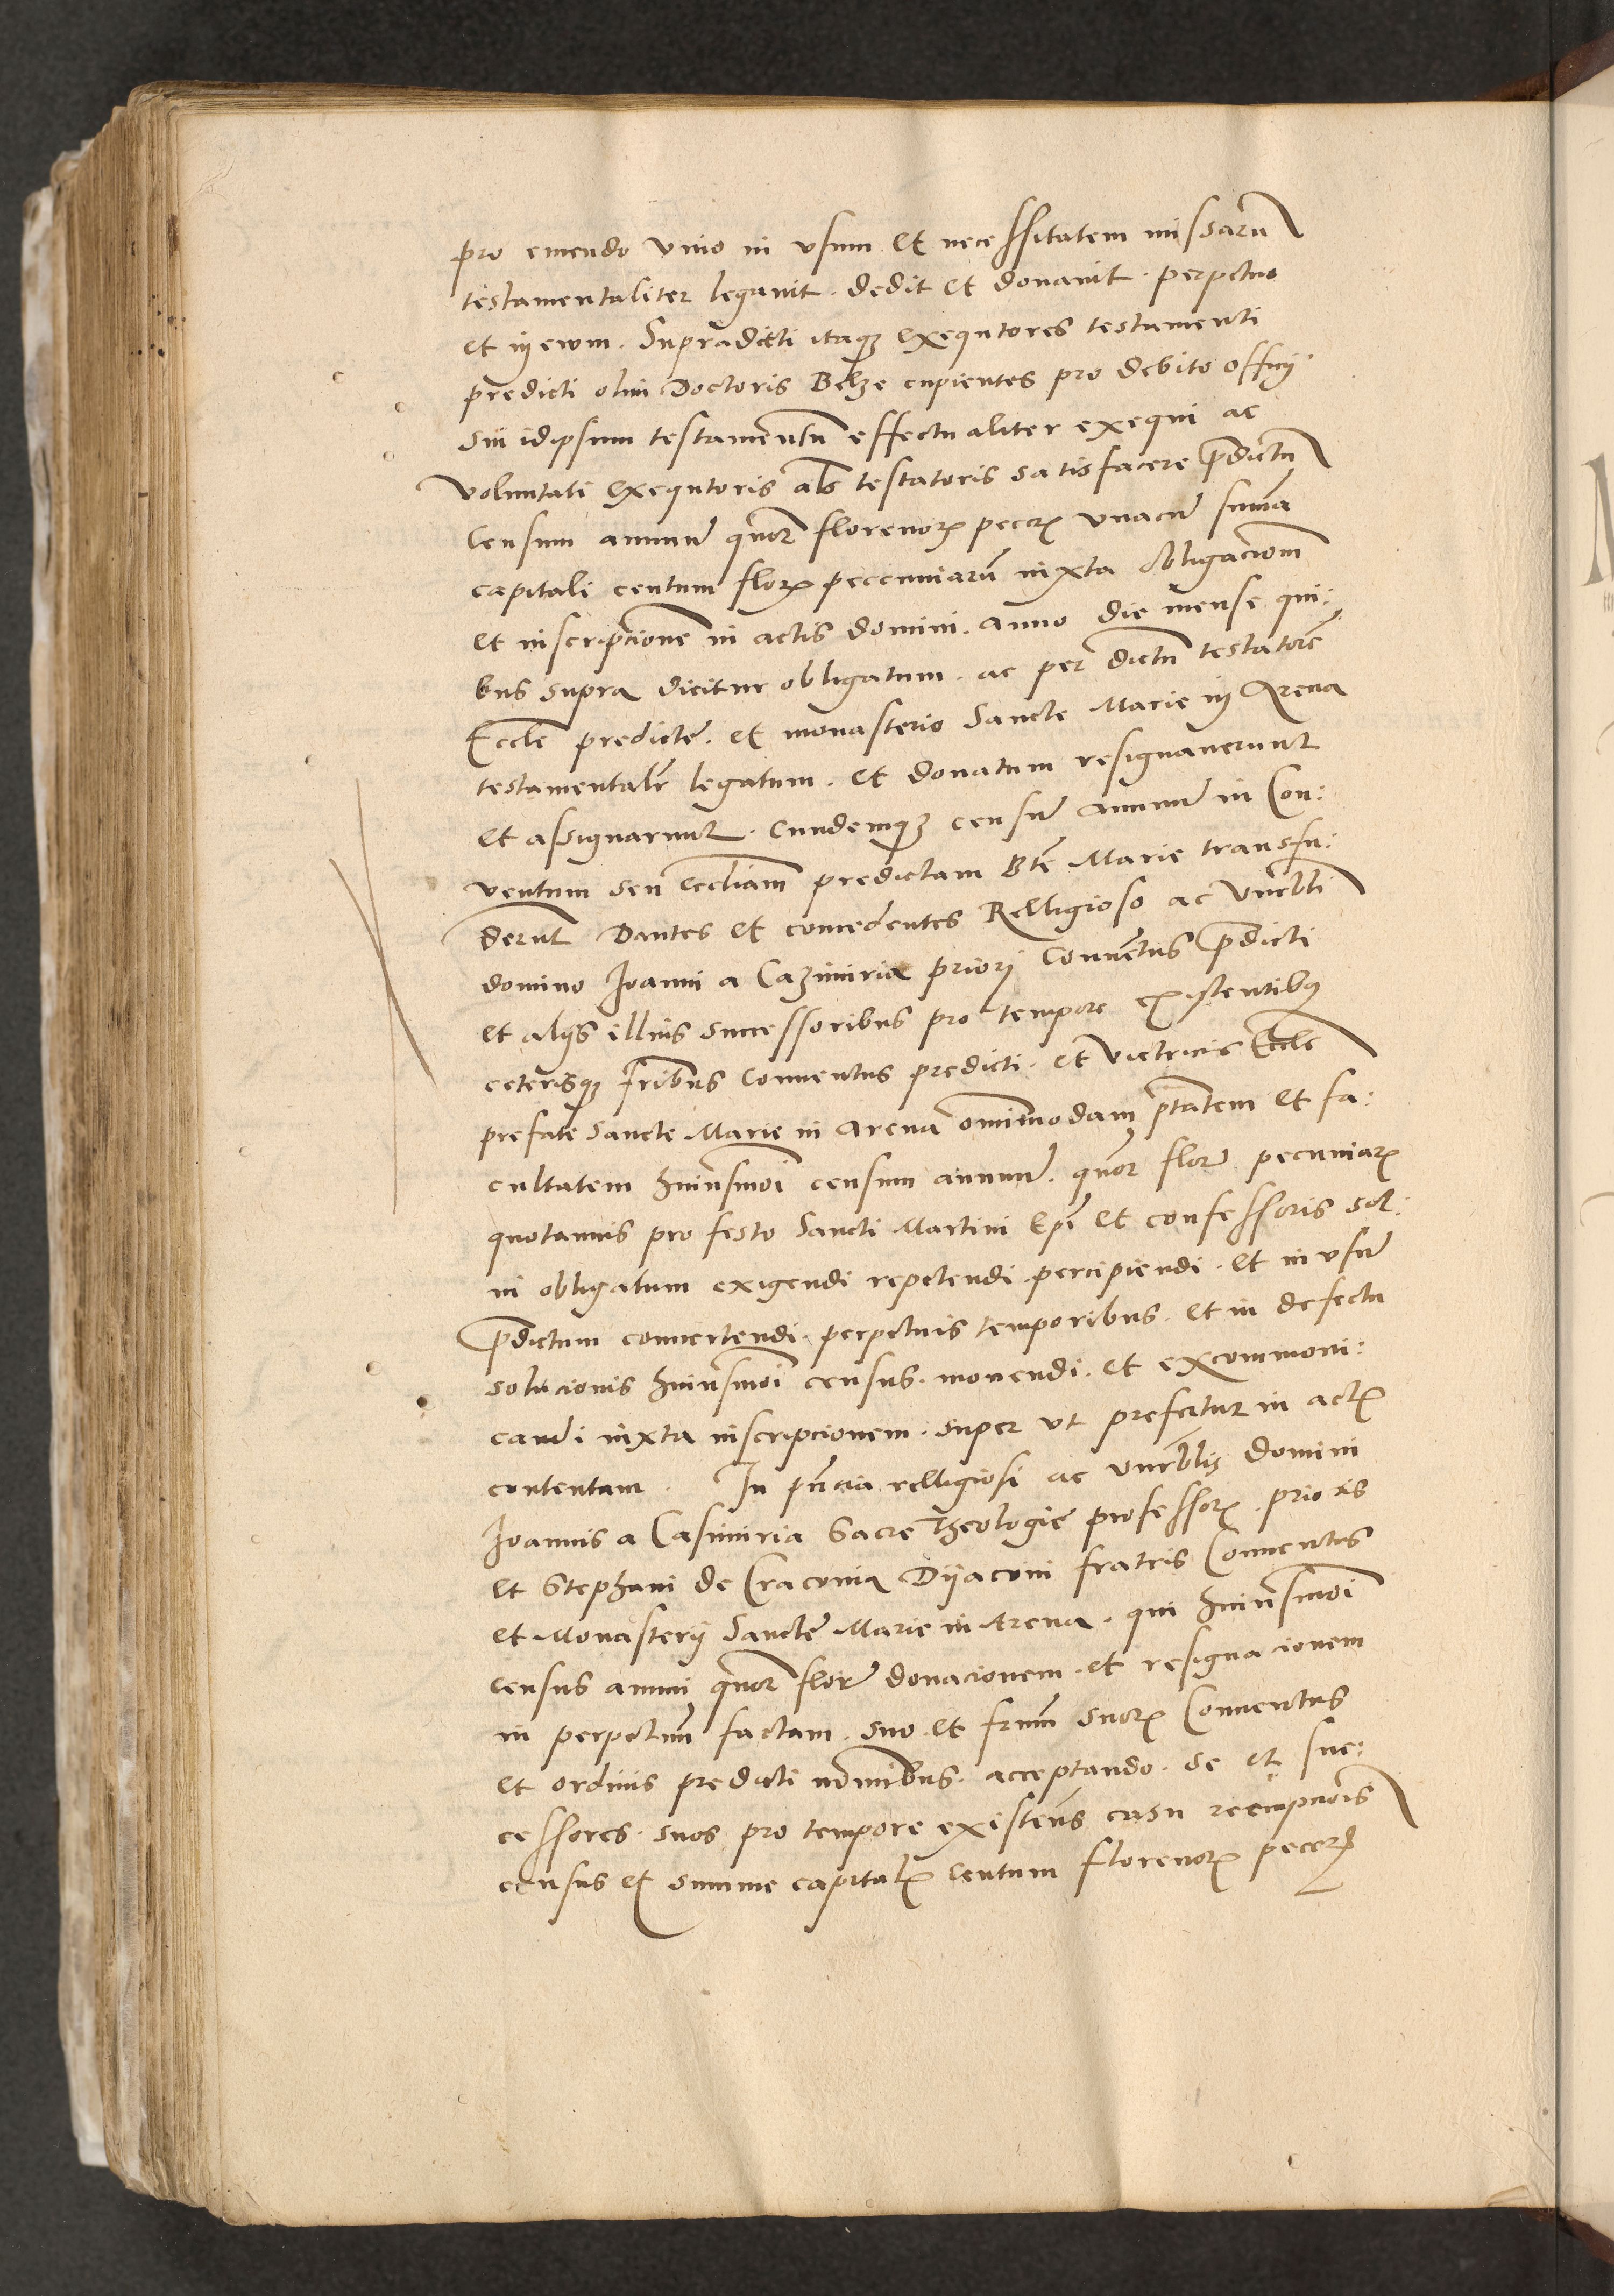 pro emendo vino in vsum et necessitatem missarū
testamentaliter legauit . dedit et donauit . perpetuo
et in ewm . Supradicti itaqz exequtores testamenti
predicti olim Doctoris Belze cupientes pro debito officij
sui idipsum testamentū effectualiter exequi ac
voluntati exequtoris als testatoris satisfacere p̄dictū
Censum annuū quor florenorꝫ peccꝫ vnacū sum̄a
capitali centum florꝫ peccuniarū iuxta obligaciom̄
et inscripcionē in actis domini . anno die mense qui:
bus supra dicitur obligatum . ac per dictū testatorē
Eccle predicte . et monasterio Sancte Marie in Arena
testamentalr̄ legatum . et donatum resignauerunt
et assignarunt . Eundemqz censū annuū in Con:
uentum seu eccliam̄ predictam Bte Marie transfu:
derūt Dantes et concedentes Relligioso ac Vnerbli
domino Joanni a Cazimiria priori Conuētus p̄dicti
et alijs illius successoribus pro tempore existentibꝰ
ceterisqz fribus conuentus predicti . et victricis Eccle
prefate Sancte Marie in Arena omnimodam p̄tatem et fa:
cultatem huiusmōi censum annuū . quor florꝫ pecuniarꝫ
quotannis pro festo Sancti Martini Ep̄i et confessoris sol:
ui obligatum exigendi repetendi percipiendi . et in vsū
p̄dictum conuertendi perpetuis temporibus . et in defectu
solucionis huiusmōi census . monendi . et excommoni:
candi iuxta inscripcionem . super vt prefertur in actꝫ
contentam . In pn̄cia relligiosi ac vnerblis domini
Joannis a Casimiria Sacre Theologie professorꝫ . prioris
et Stephani de Cracouia Dijaconi fratris Conuentus
et Monasterij Sancte Marie in Arena . qui huiusmōi
census annui quor florꝫ donacionem . et resignacionem
in perpetuū factam . suo . et frum̄ suorꝫ Conuentus
et ordinis predicti nōmibus . acceptando . se et suc:
cessores . suos pro tempore existeñs casu reempcionis
census et summe capitalꝫ Centum florenorꝫ peccꝫ